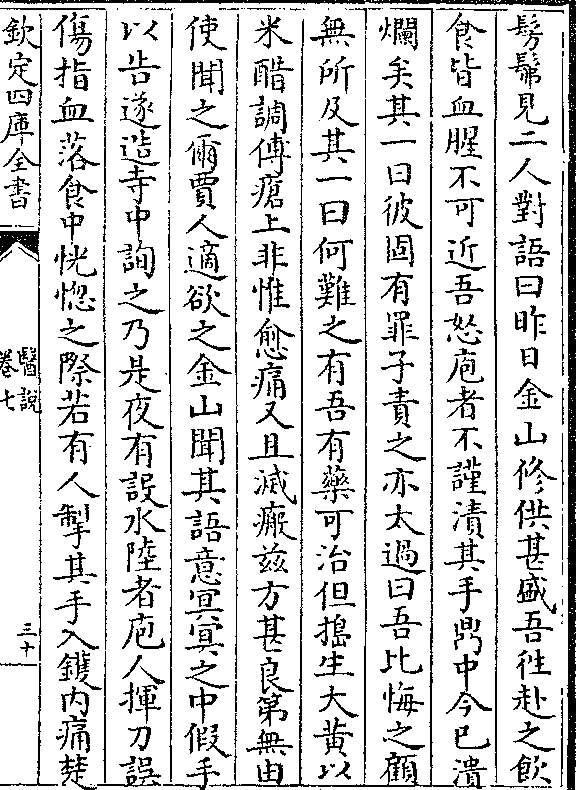 髣髴見二人對語曰昨日金山修供甚盛吾徃赴之飲
食皆血腥不可近吾怒庖者不謹漬其手鼎中今已潰
爛矣其一曰彼固有罪子責之亦太過曰吾比悔之顧
無所及其一曰何難之有吾有藥可治但搗生大黄以
米醋調傅瘡上非惟愈痛又且滅瘢兹方甚良第無由
使聞之爾賈人適欲之金山聞其語意冥冥之中假手
以告遂造寺中詢之乃是夜有設水陸者庖人揮刀誤
傷指血落食中恍惚之際若有人掣其手入鑊内痛楚
欽定四庫全書
醫説
卷七
三十